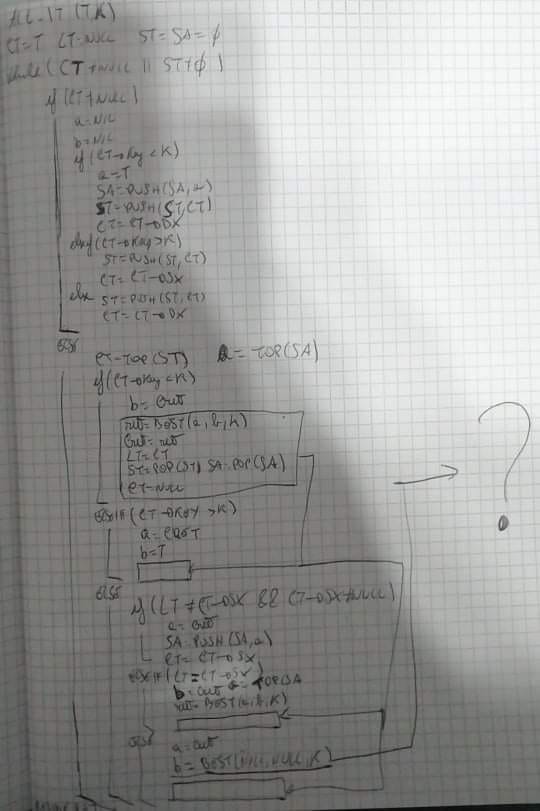 ALG_IT (T,K)
CT=T LT=NULL ST=SA=∅
while (CT≠NULL || ST≠∅)
if (CT≠NULL)
a=NIL
b=NIL
if (CT→Key<K)
a=T
SA=PUSH(SA,a)
ST=PUSH(ST,CT)
CT=CT→DX
elseif (CT→Key>K)
ST=PUSH(ST,CT)
CT=CT→SX
else ST=PUSH(ST,CT)
CT=CT→DX
ELSE
CT=TOP(ST) a=TOP(SA)
if (CT→Key<K)
b=Cret
ret=BEST(a,b,K)
Cret=ret
LT=CT
ST=POP(ST) SA=POP(SA)
CT=NULL
ELSE IF (CT→Key>K)
a=
b=T
ELSE
if (LT≠CT→SX && CT→SX≠NULL)
a=Cret
SA=PUSH(SA,a)
CT=CT→SX
ELSE IF (LT=CT→SX)
b=Cret a=TOP(SA
ret=BEST(a,b,K)
ELSE
a=Cret
b=BEST(NULL,NULL,K)
?